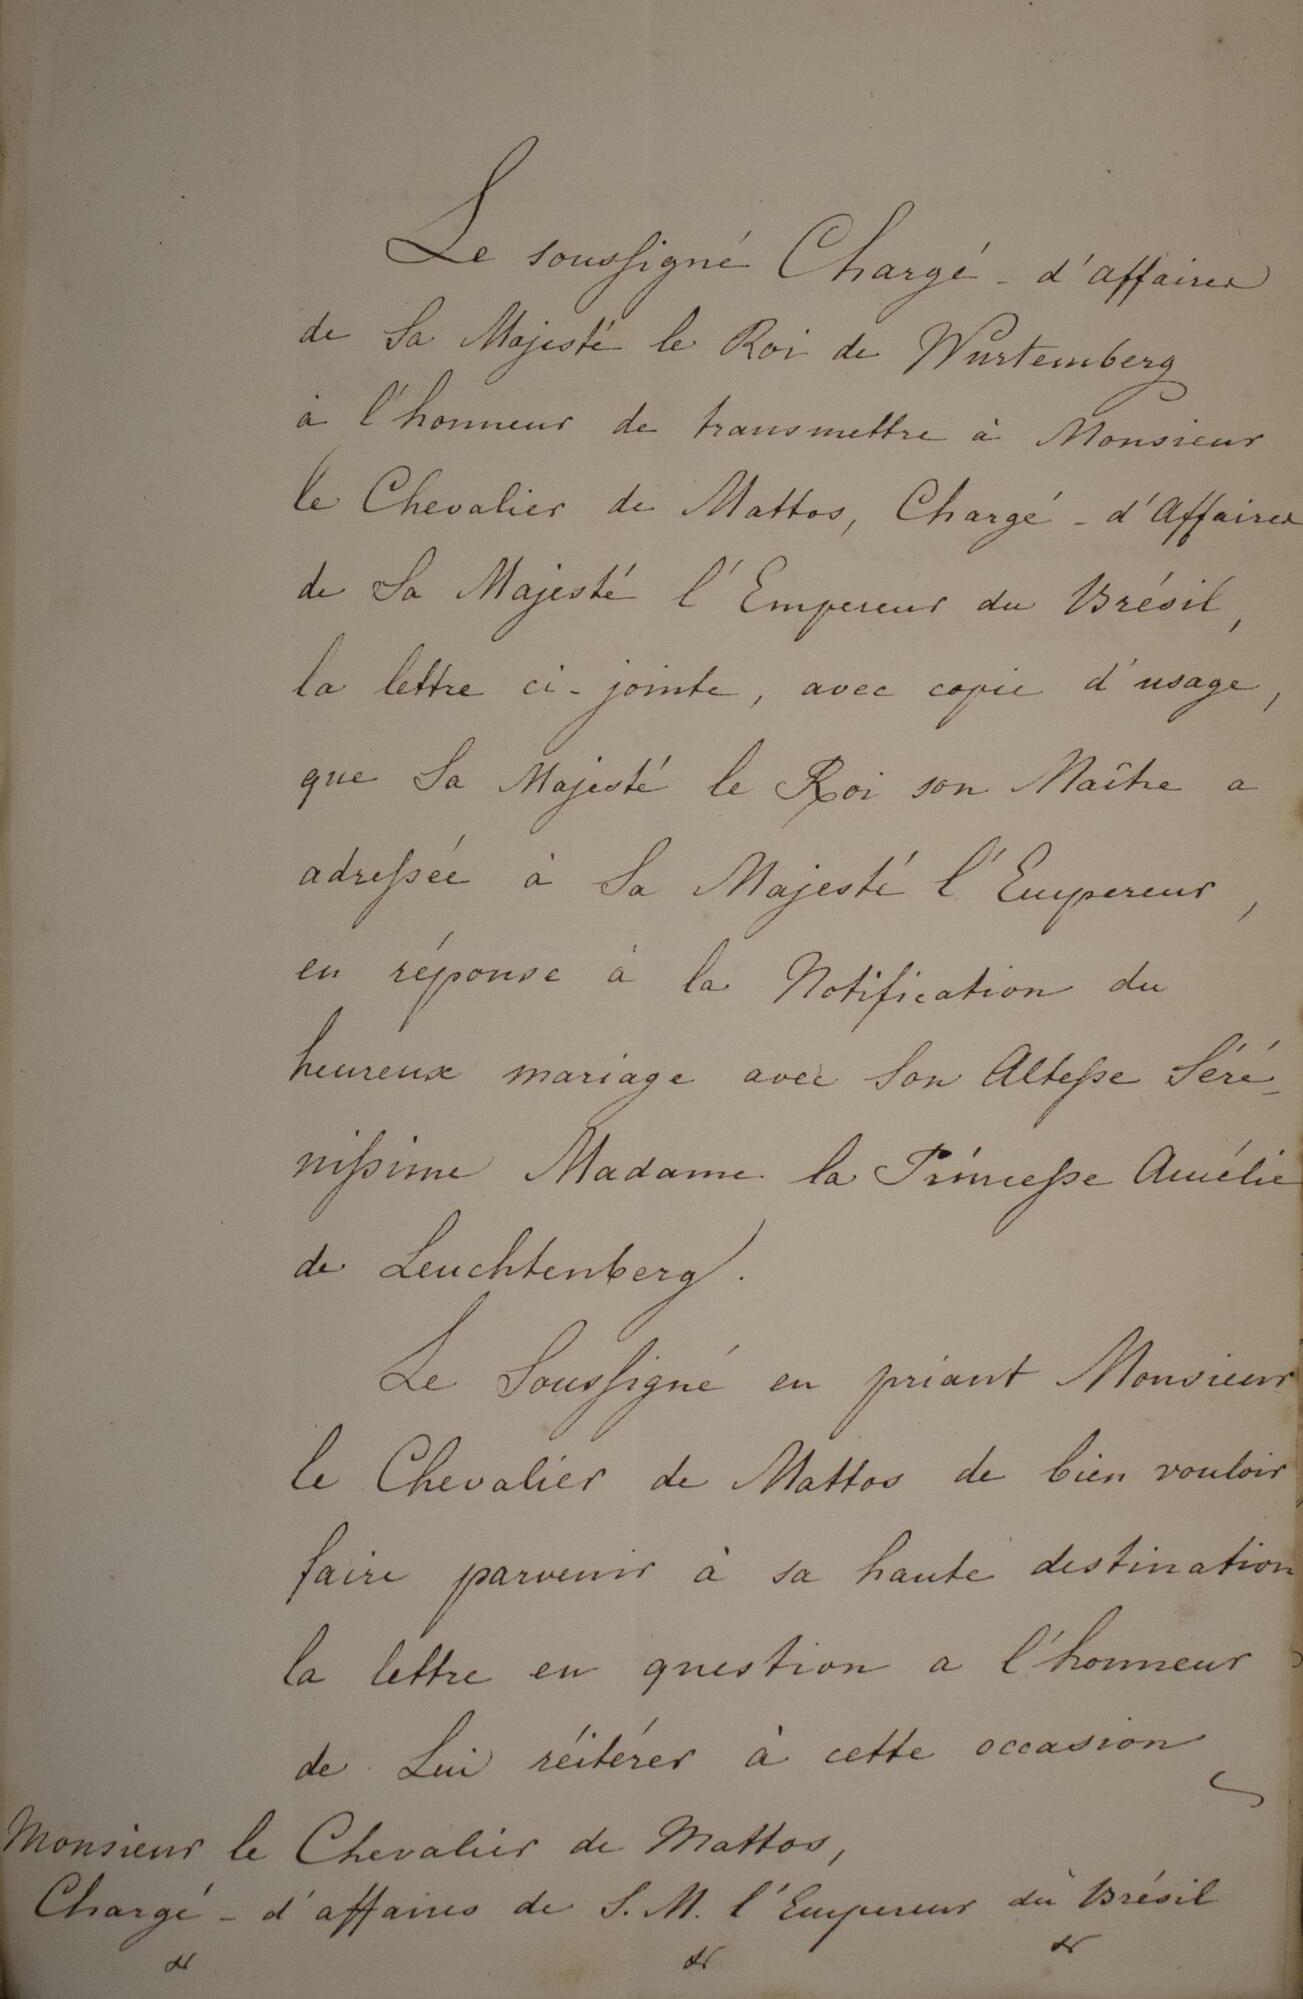 Le soussigné Chargé - d'affaires
de Sa Majesté le Roi de Wurtemberg
à l'honneur de transmettre à Monsieur
le Chevalier de Mattos, Chargé - d'Affaires
de Sa Majesté l'Empereur du Brésil,
la lettre ci-jointe, avec copie d'usage,
que Sa Majesté le Roi son Maître a
adressée à Sa Majesté l'Empereur,
en réponse à la Notification du
heureux mariage avec Son Altesse Séré-
nissime Madame la Princesse Amélie
de Leuchtenberg.
Le Soussigné en priant Monsieur
le Chevalier de Mattos de bien vouloir
faire parvenir à sa haute destination
la lettre en question a l'honneur
de Lui réitérer à cette occasion
Monsieur le Chevalier de Mattos,
Chargé - d'affaires de S. M. l'Empereur du Brésil
&c &c &c